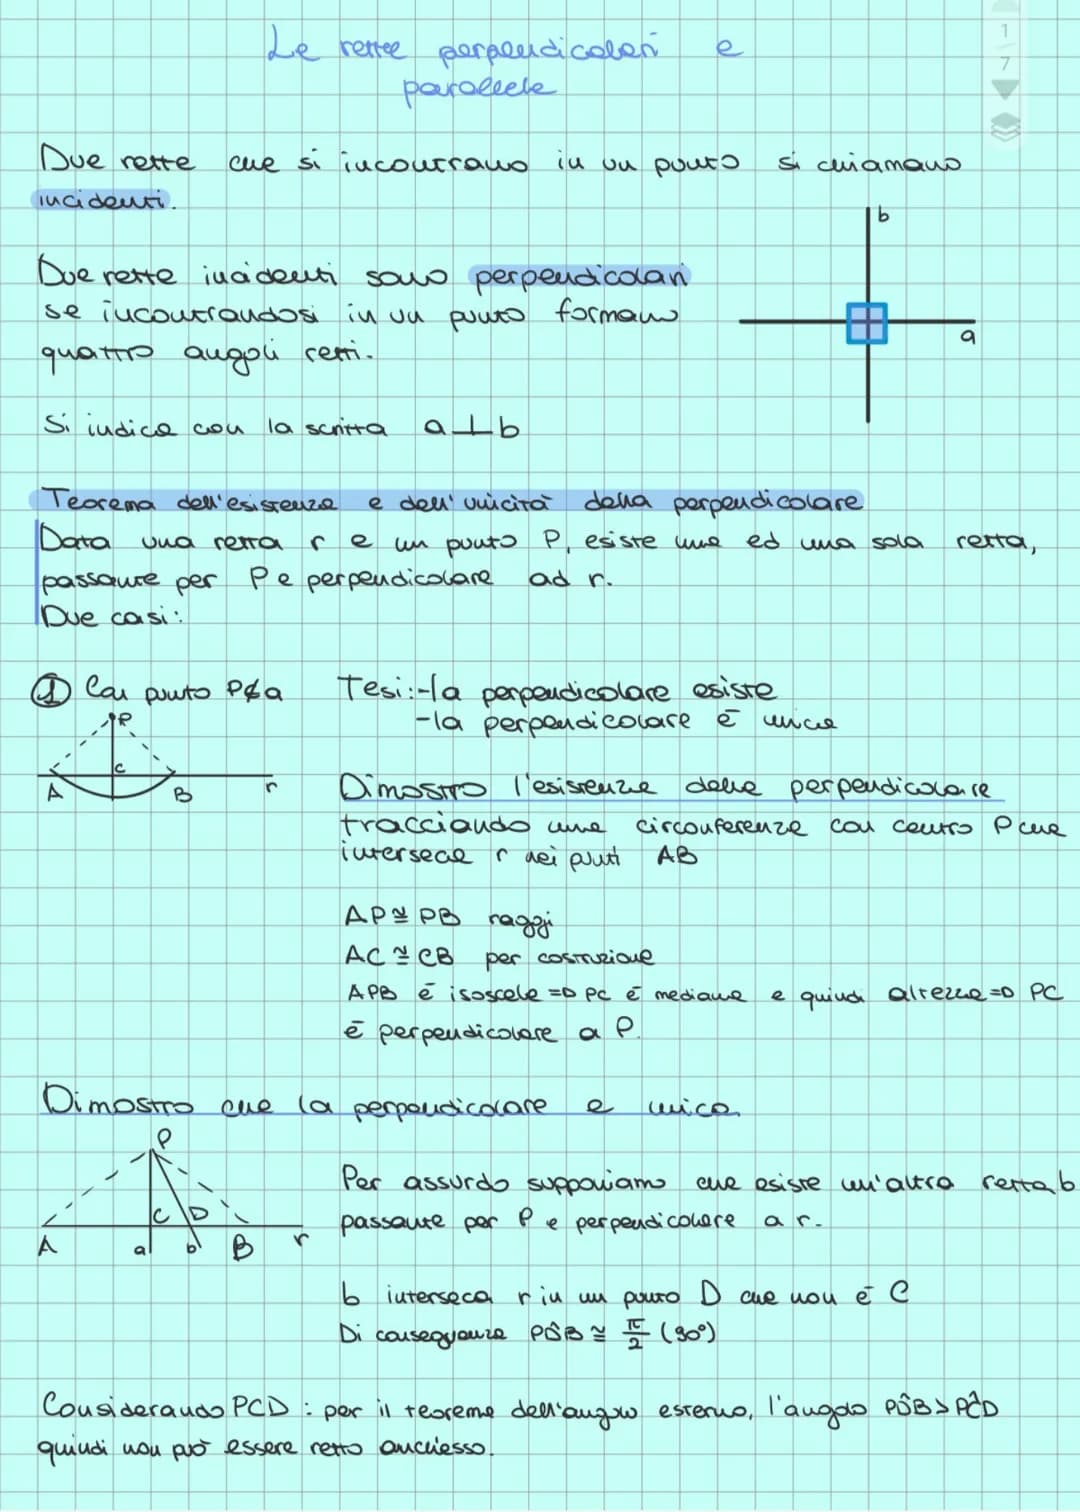 Le rette perpendicolari e
parallele
1
7
Due rette che si incontrano in un punto si chiamano
incidenti.
b
Due rette incidenti sono perpendicolari
se incontrandosi in un punto formano
a
quattro angoli retti.
Si indica con la scritta a⊥b
Teorema dell'esistenza e dell'unicità della perpendicolare
Data una retta r e un punto P, esiste una ed una sola retta,
passante per P e perpendicolare ad r.
Due casi:
① Con punto P∉a
Tesi:-la perpendicolare esiste
-la perpendicolare è unica
P
C
A B r
Dimostro l'esistenza della perpendicolare
tracciando una circonferenza con centro P che
interseca r nei punti AB
AP≅PB raggi
AC≅CB per costruzione
APB è isoscele => PC è mediana e quindi altezza => PC
è perpendicolare a P.
Dimostro che la perpendicolare e unica.
P
C D
A a b B r
Per assurdo supponiamo che esiste un'altra retta b
passante per P e perpendicolare a r.
b interseca r in un punto D che non è C
Di conseguenza PD̂B ≅ π/2 (90°)
Considerando PCD: per il teorema dell'angolo esterno, l'angolo PD̂B>PĈD
quindi non può essere retto anch'esso.